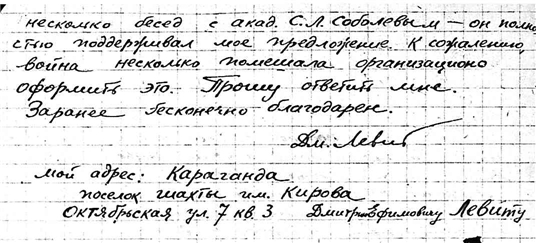 несколько бесед с акад. С.Л. Соболевым — он полно
стью поддерживал мое предложение. К сожалению,
война несколько помешала организационо
оформить это. Прошу ответить мне.
Заранее бесконечно благодарен.
Дм. Левит
мой адрес: Караганда
поселок шахты им. Кирова
Октябрьская ул. 7 кв. 3 Дмитрию Ефимовичу Левиту